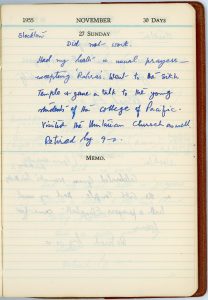 1955 NOVEMBER 30 DAYS
Stockton 27 SUNDAY
Did not work.
Had my bath & usual prayers -
Went to the Sikh
Temple & gave a talk to the young
students of the College of Pacific.
Visited the Unitarian Church as well
Retired by 9-
MEMO.